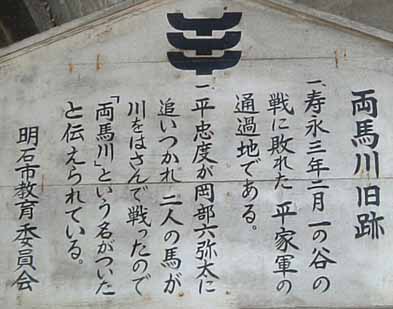 両馬川旧跡
一、寿永三年二月一の谷の
戦に敗れた平家軍の
通過地である。
一、平忠度が岡部六弥太に
追いつかれ二人の馬が
川をはさんで戦ったので
「両馬川」という名がついた
と伝えられている。
明石市教育委員会